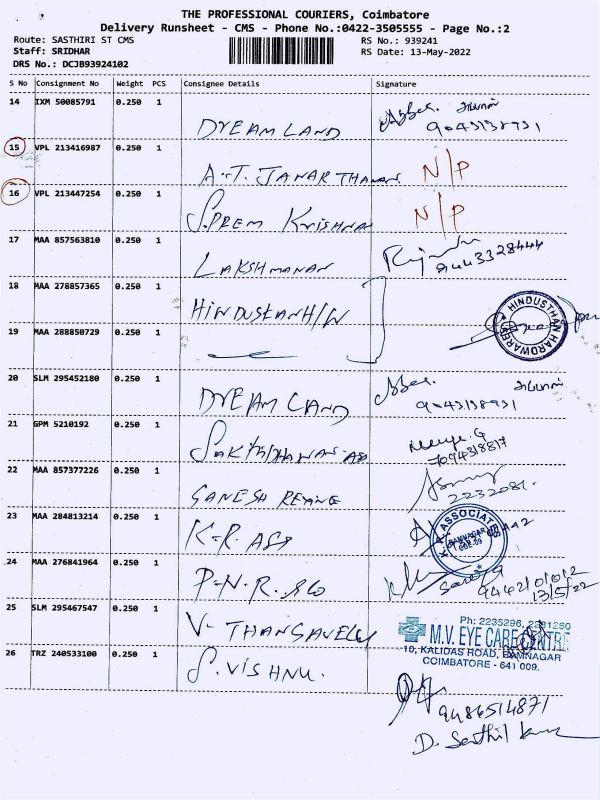 THE PROFESSIONAL COURIERS, Coimbatore
Delivery Runsheet - CMS - Phone No.:0422-3505555 - Page No.:2
Route: SASTHIRI ST CMS
RS No.: 939241
Staff: SRIDHAR
RS Date: 13-May-2022
DRS No.: DCJB93924102
S No Consignment No Weight PCS Consignee Details Signature
14 IXM 50085791 0.250 1 DREAM LAND
9043138931
15 VPL 213416987 0.250 1 A.T. JANARTHANAN N/P
16 VPL 213447254 0.250 1 S.PREM Krishna N/P
17 MAA 857563810 0.250 1 LAKSHMANAN 9443328444
18 MAA 278857365 0.250 1 HINDUSTAN H/W
HINDUSTHAN HARDWARES
19 MAA 288850729 0.250 1
20 SLM 295452180 0.250 1 DREAM LAND
9043138931
21 GPM 5210192 0.250 1
22 MAA 857377226 0.250 1 GANESH
2232081.
23 MAA 284813214 0.250 1 K-R. ASS
K. R. ASSOCIATES
RAMNAGAR
CBE-09
24 MAA 276841964 0.250 1 P-N.R.
13/5/22
25 SLM 295467547 0.250 1 V- THANGAVELU
Ph: 2235296,
M.V. EYE CARE CENTRE
10, KALIDAS ROAD, RAMNAGAR
COIMBATORE - 641 009.
26 TRZ 240533100 0.250 1 S.VISHNU.
9486514871
D. Senthil